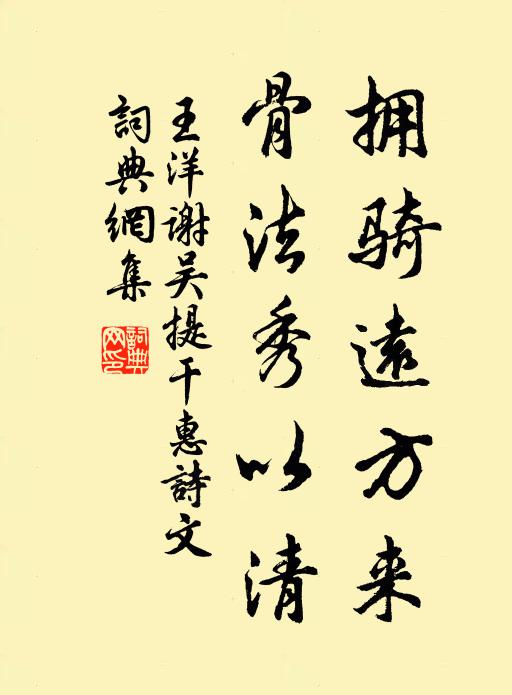 拥骑远方来
骨法秀以清
王洋谢吴提干惠詩文
詞典網集
詞典
网印